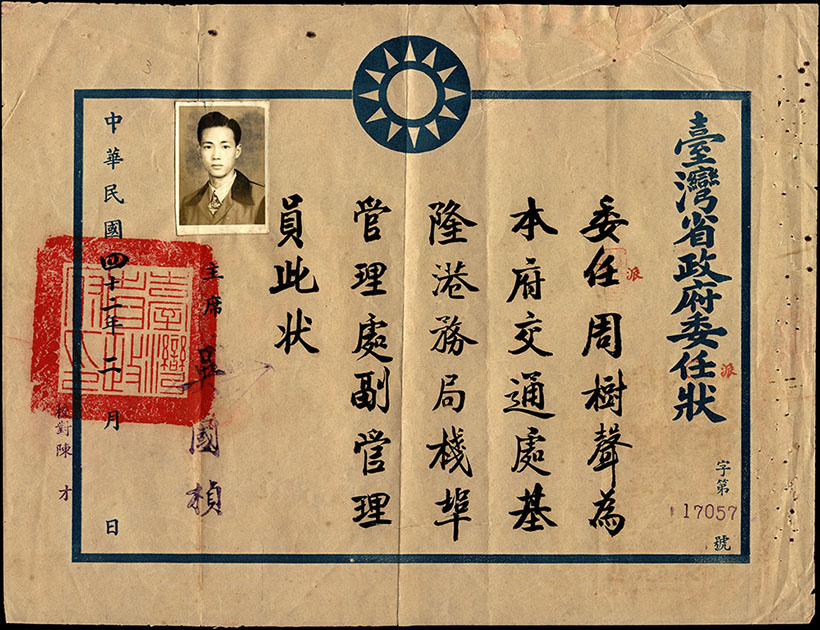 臺灣省政府委任狀
派
字第
17057
號
委任周樹聲為
派
本府交通處基
隆港務局棧埠
管理處副管理
員此狀
主席 吳國楨
臺灣省政府印
中華民國四十二年二月 日
校對陳才